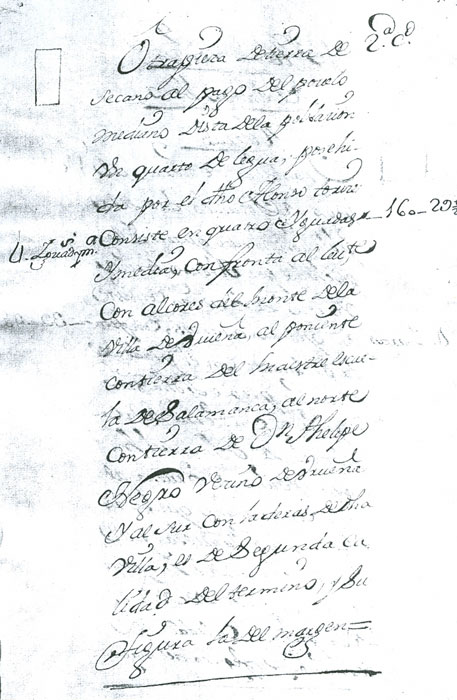 Otra pieza de tierra de 2.ª Cd.
Secano al pago del pozolo
mediano dista de la poblacion
un quarto de legua, posehi-
da por el dho Alonso
Consiste en quatro Yguadas – 160 – 29
Y media, Confronta al Leste
Con alcores del monte de la
Villa de Dueña, al poniente
Con tierra del Maestre escue-
la de Salamanca, al norte
Con tierra de Dn Phelipe
Negro Vecino de Dueña
Y al Sur Con laderas de dha
Villa, es de Segunda Ca
lidad del termino, y Su
Figura la del margen=